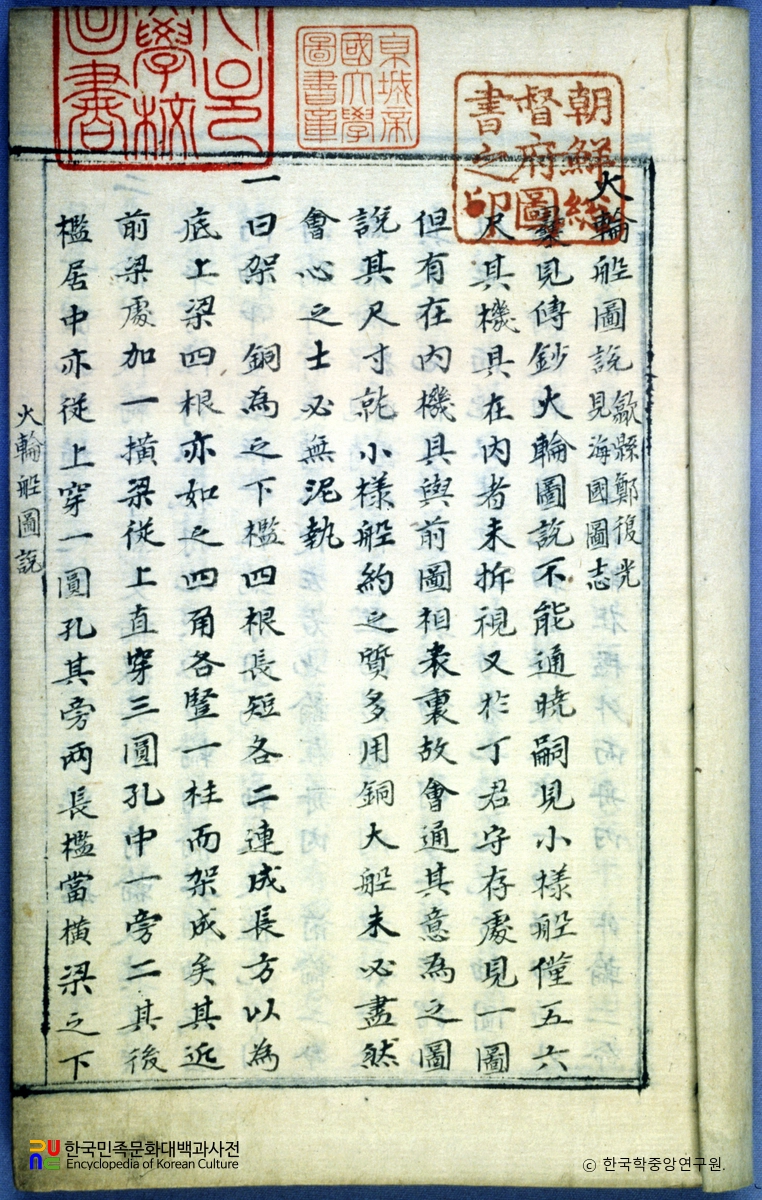 朝鮮總
督府圖
書之印
京城帝
國大學
圖書章
學校
圖書
火輪船圖說
歙縣鄭復光
見海國圖志
曩見傳鈔火輪圖說不能通曉嗣見小樣船僅五六
尺其機具在內者未拆視又於丁君守存處見一圖
但有在內機具與前圖相表裏故會通其意為之圖
說其尺寸就小樣船約之質多用銅大船未必盡然
會心之士必無泥執
一曰架 銅為之下檻四根長短各二連成長方以為
底上梁四根亦如之四角各豎一柱而架成矣其近
前梁處加一橫梁從上直穿三圓孔中一旁二其後
檻居中亦從上穿一圓孔其旁兩長檻當橫梁之下
火輪船圖說
한국민족문화대백과사전
Encyclopedia of Korean Culture
© 한국학중앙연구원.